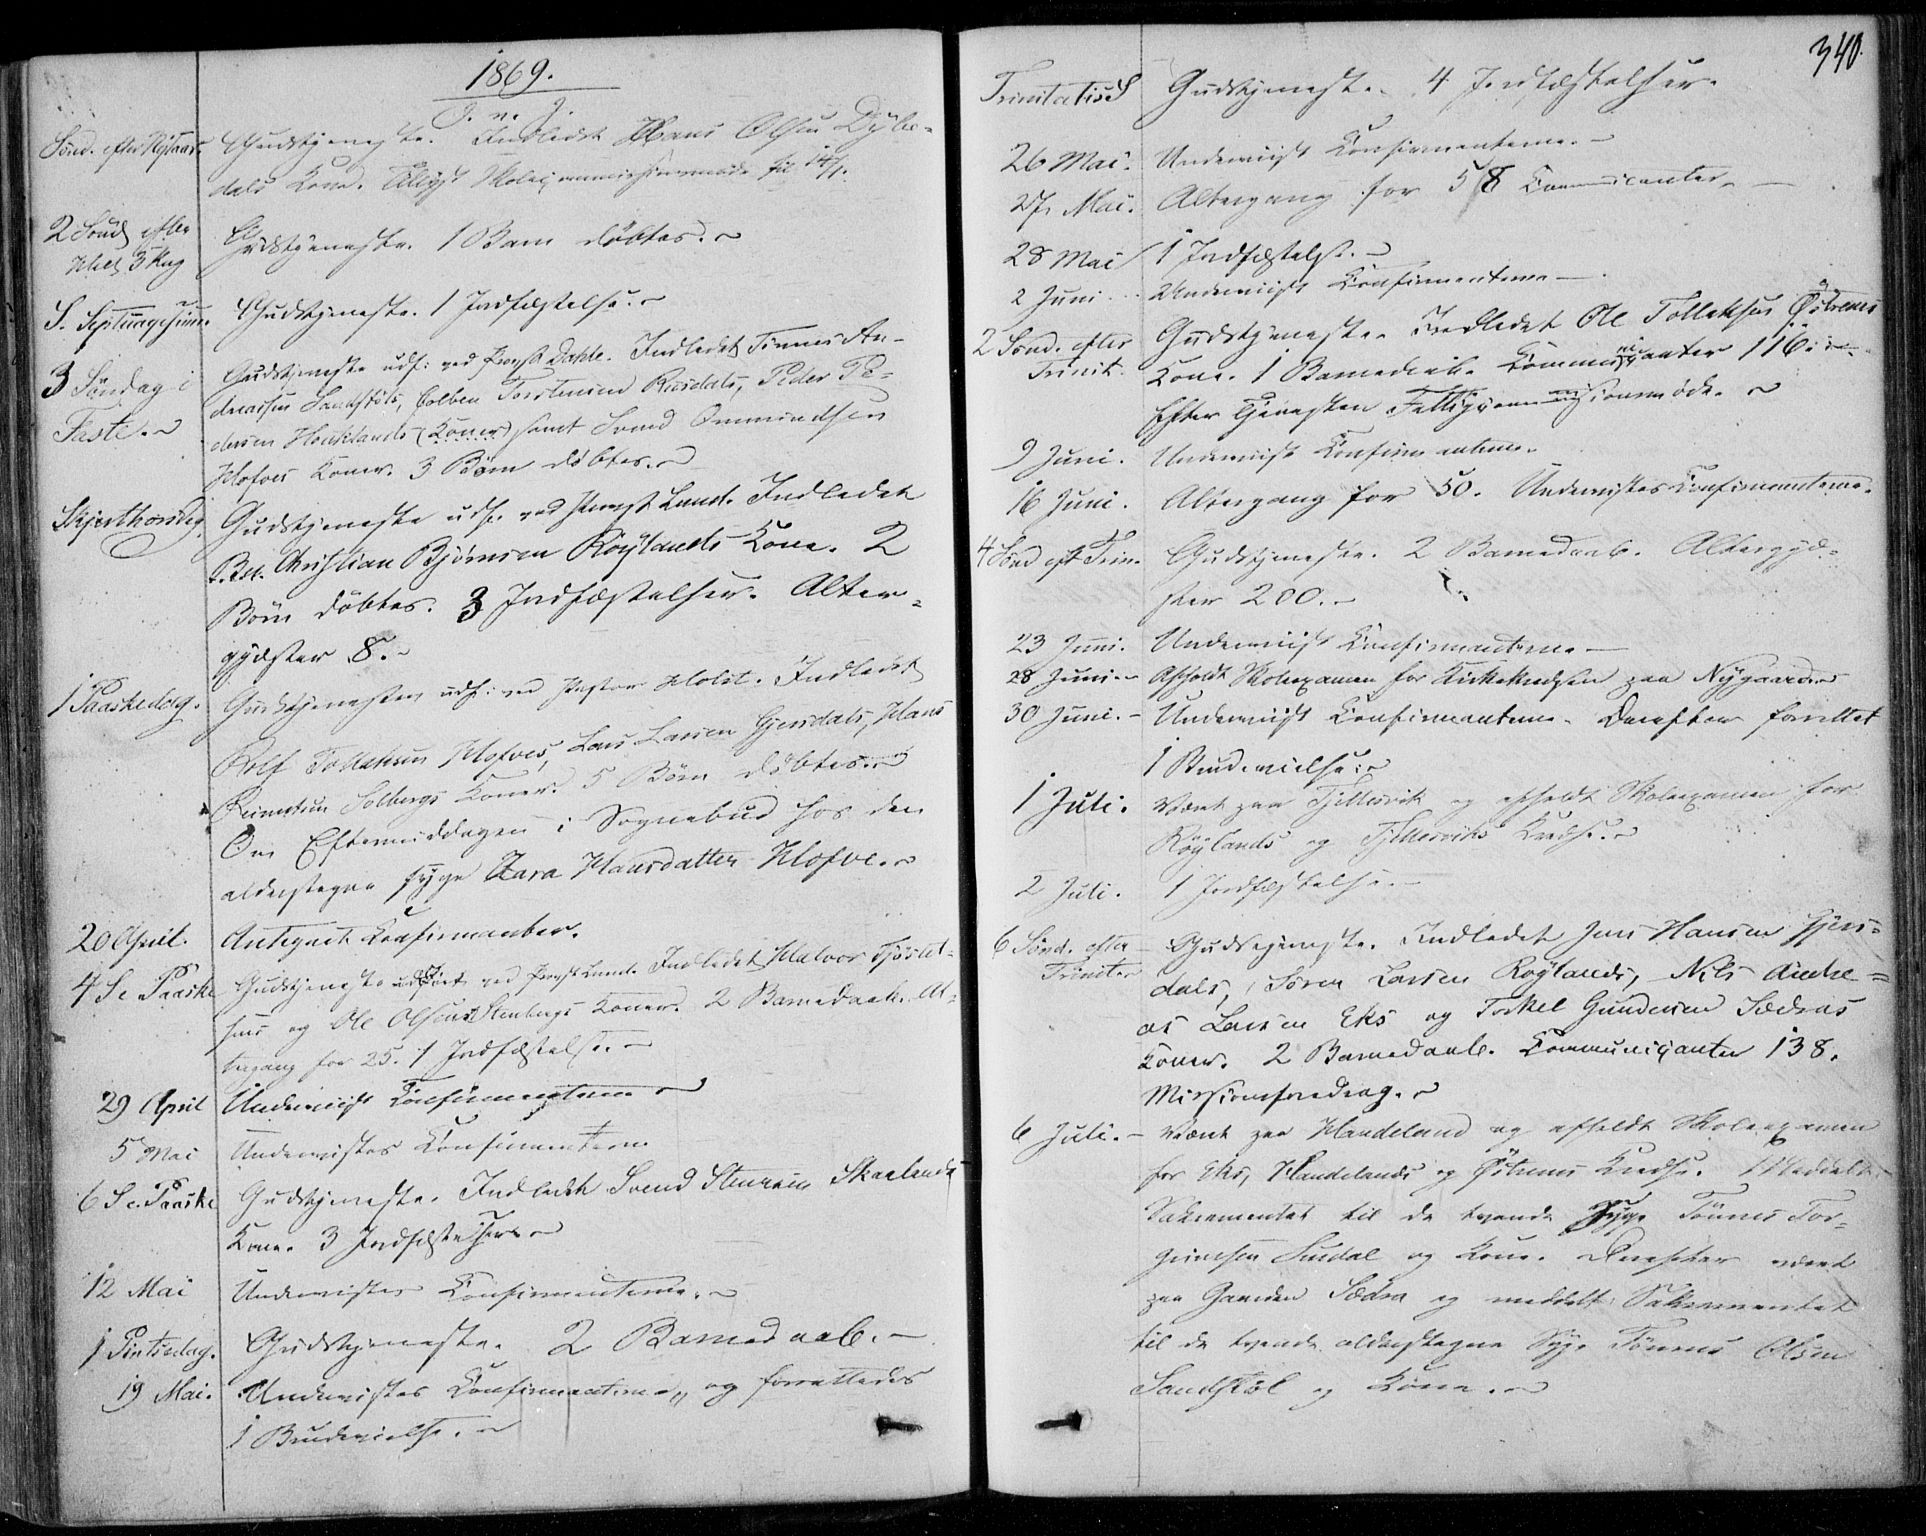 1869.
J. n. J.
Sönd. efter Nytaar. Gudstjeneste. Indledet Hans Olsen Dybe-
dals Kone. Tillyst Skolecommissionsmöde til 14/1.
2 Sönd efter Hell 3 Kng Gudstjeneste. 1 Barn döbtes.
S. Septuagesima Gudstjeneste. 1 Jordfæstelse.
3 Söndag i Faste. Gudstjeneste udf: ved Provst Dahle. Indledet Tönnes An-
dreassen Sandstöls, Torstensen Rusdals, Peder Pe-
dersen Houklands (Koner) samt Svend Ommundsen
Hofves Koner. 3 Börn döbtes.
Skjærthorsdag. Gudstjeneste udf. ved Provst Lund. Indledet
Christian Björnsen Röylands Kone. 2
Börn döbtes. 3 Jordfæstelser. Alter-
gjæster 8.
1 Paaskedag. Gudstjenesten udf: ved Pastor Holst. Indledet
Rolf Tollaksen Hofves, Lars Larsen Gjersdals, Hans
Reinertsen Solbergs Koner. 5 Börn döbtes.
Om Eftermiddagen i Sognebud hos den
alderstegne syge Sara Hansdatter Hofve.
20 April. Antegnet Confirmanter.
4 S e Paaske Gudstjeneste udfört ved Provst Lund. Indledet Halvor Tjöstel-
sens og Ole Olsens Stenbergs Koner. 2 Barnedaab. Al-
tergang for 25. 1 Jordfæstelse.
29 April Underviist Confirmanterne
5 Mai Undervistes Confirmanterne
6 S e. Paaske Gudstjeneste. Indledet Svend Stensen Skaalands
Kone. 3 Jordfæstelser.
12 Mai Undervistes Confirmanterne.
1 Pintsedag. Gudstjeneste. 2 Barnedaab.
19 Mai. Undervistes Confirmanterne, og forrettedes
1 Brudevielse.
340.
Trinitatis S Gudstjeneste. 4 Jordfæstelser.
26 Mai. Underviist Confirmanterne.
27 Mai. Altergang for 58 Communicanter.
28 Mai 1 Jordfæstelse.
2 Juni. Underviist Confirmanterne
2 Sönd. efter Trinit. Gudstjeneste. Indledet Ole Tollaksens Östrems
Kone. 1 Barnedaab. Communicanter 116.
Efter Tjenesten Fattigcommissionsmöde.
9 Juni. Underviist Confirmanterne.
16 Juni. Altergang for 50. Undervistes Confirmanterne.
4 Sönd eft Trin. Gudstjeneste. 2 Barnedaab. Altergjæ-
ster 200.
23 Juni. Underviist Confirmanterne
28 Juni. Afholdt Skoleexamen for Kirkekredsen paa Nygaard
30 Juni. Underviist Confirmanterne. Derefter forrettet
1 Brudevielse.
1 Juli. Været paa Fjellesvik og afholdt Skoleexamen for
Röylands og Fjellesviks Kredse.
2 Juli. 1 Jordfæstelse.
6 Sönd. efter Trinitat Gudstjeneste. Indledet Jens Hansen Gjers-
dals, Sören Larsen Roylands, Nils Andre-
as Larsen Eks og Torkel Gundersen Sædras
Koner. 2 Barnedaab. Communicanter 138.
Missionsforedrag.
6 Juli. Været paa Handeland og afholdt Skoleexamen
for Eks, Handelands og Östrems Kredse. Meddelt
Sakramentet til de tvende syge Tönnes Tor-
geirsen Sindal og Kone. Derefter været
paa Gaarden Sædra og meddelt Sakramentet
til de tvende alderstegne Syge Tönnes Olsen
Sandstöl og Kone.